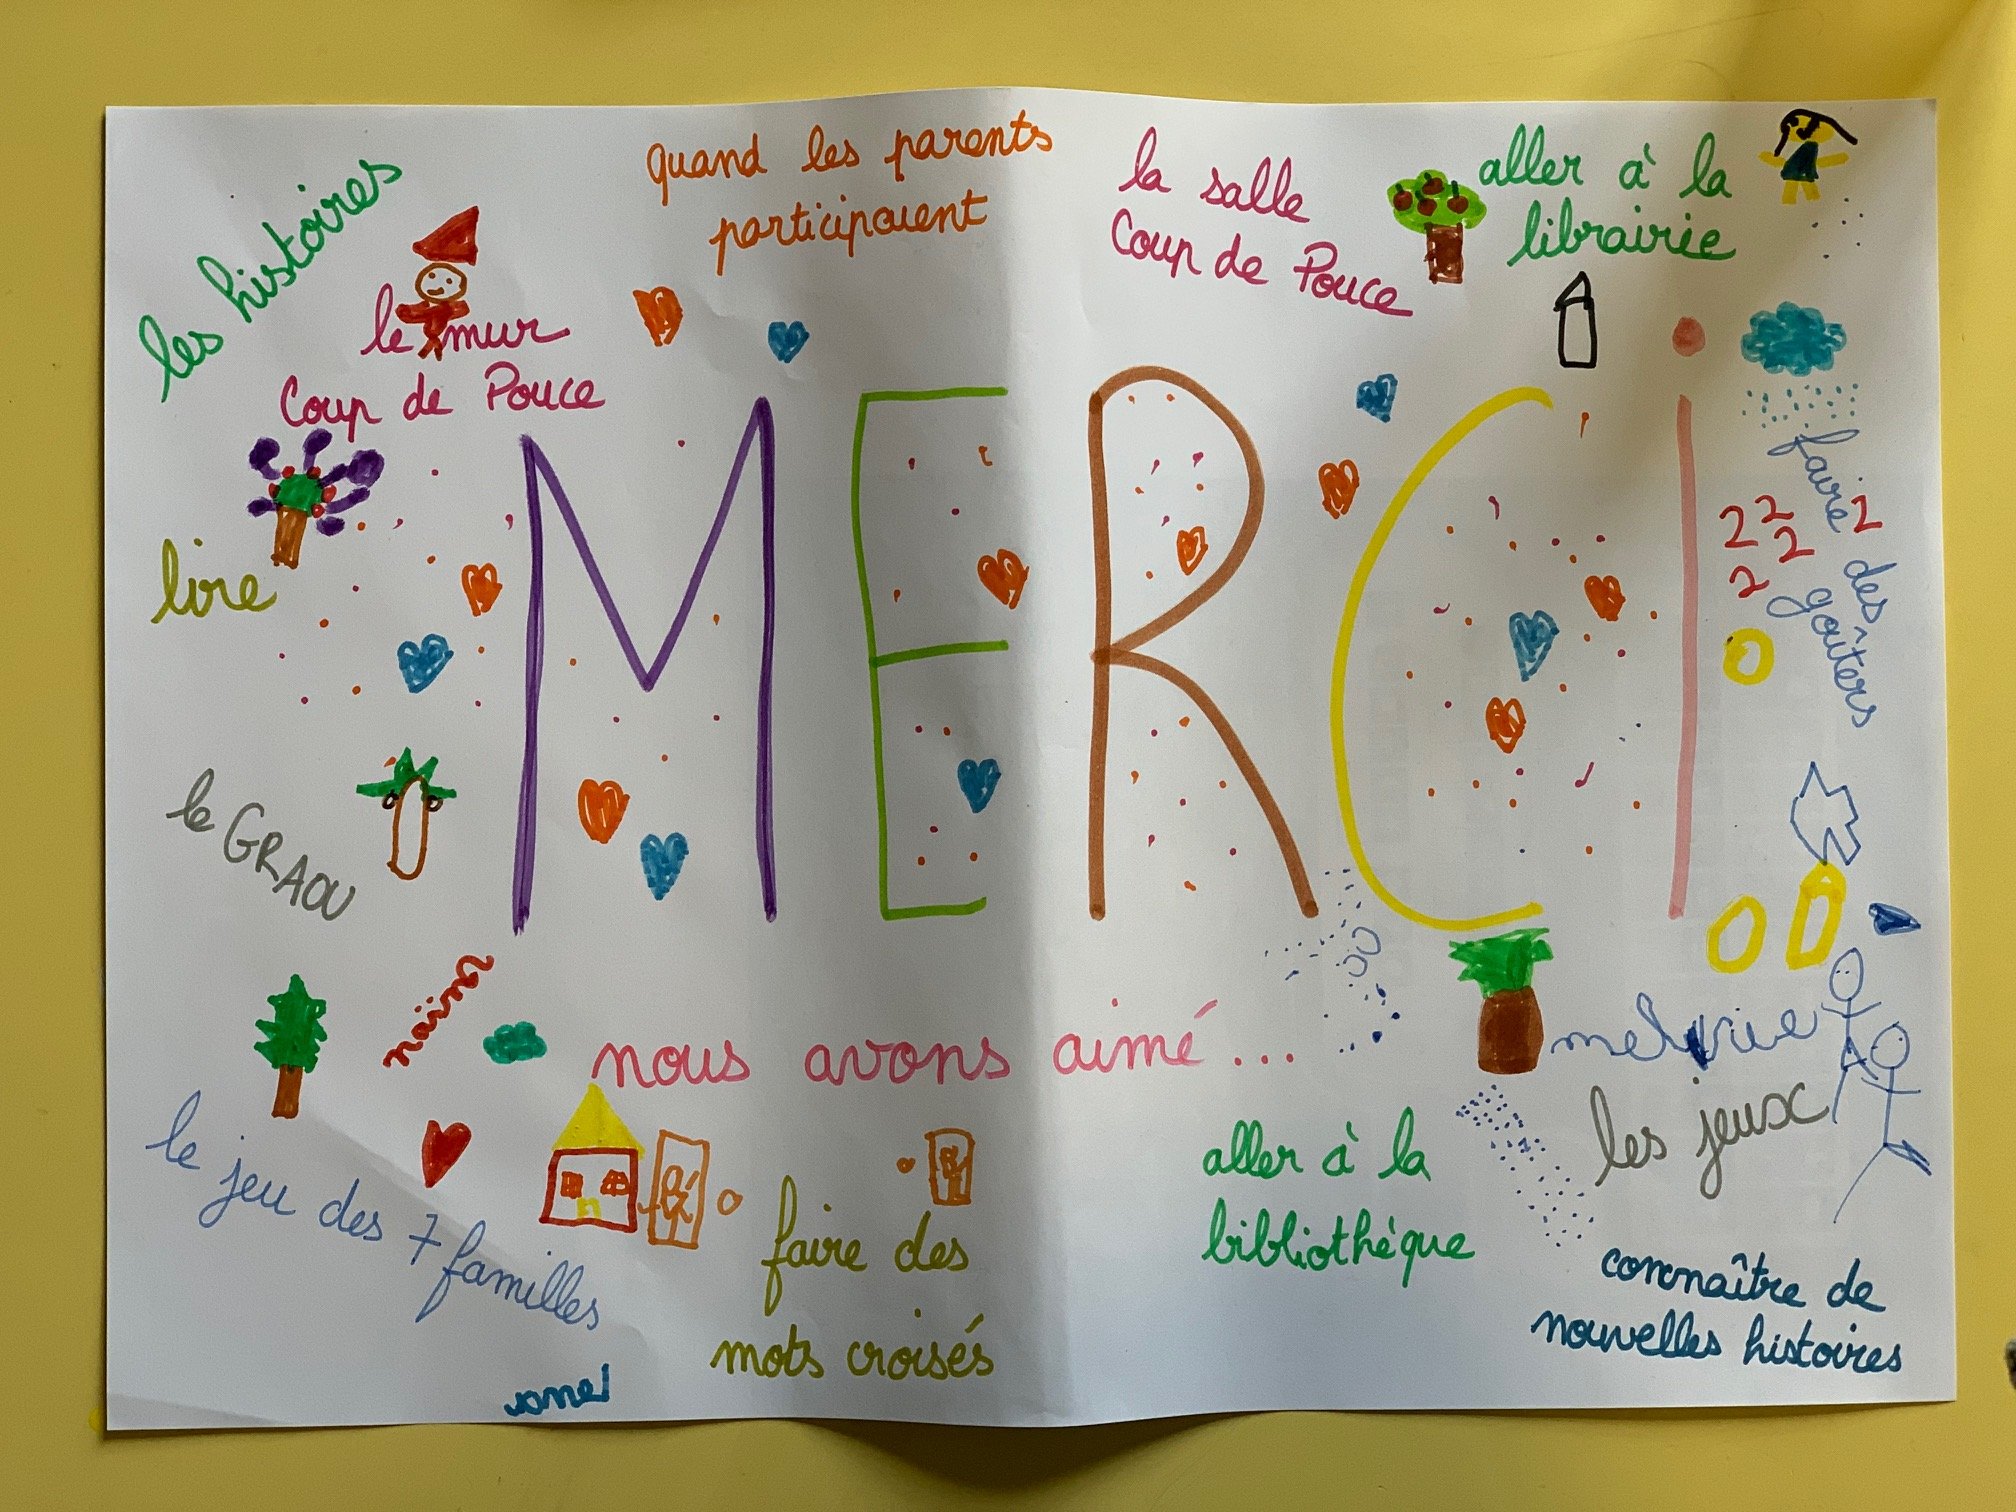 les histoires
quand les parents
participaient
la salle
Coup de Pouce
aller à la
librairie
le mur
Coup de Pouce
MERCI
lire
faire des
goûters
2 2 2
2
2
le GRAOU
naïm
nous avons aimé...
les jeux
le jeu des 7 familles
faire des
mots croisés
aller à la
bibliothèque
connaître de
nouvelles histoires